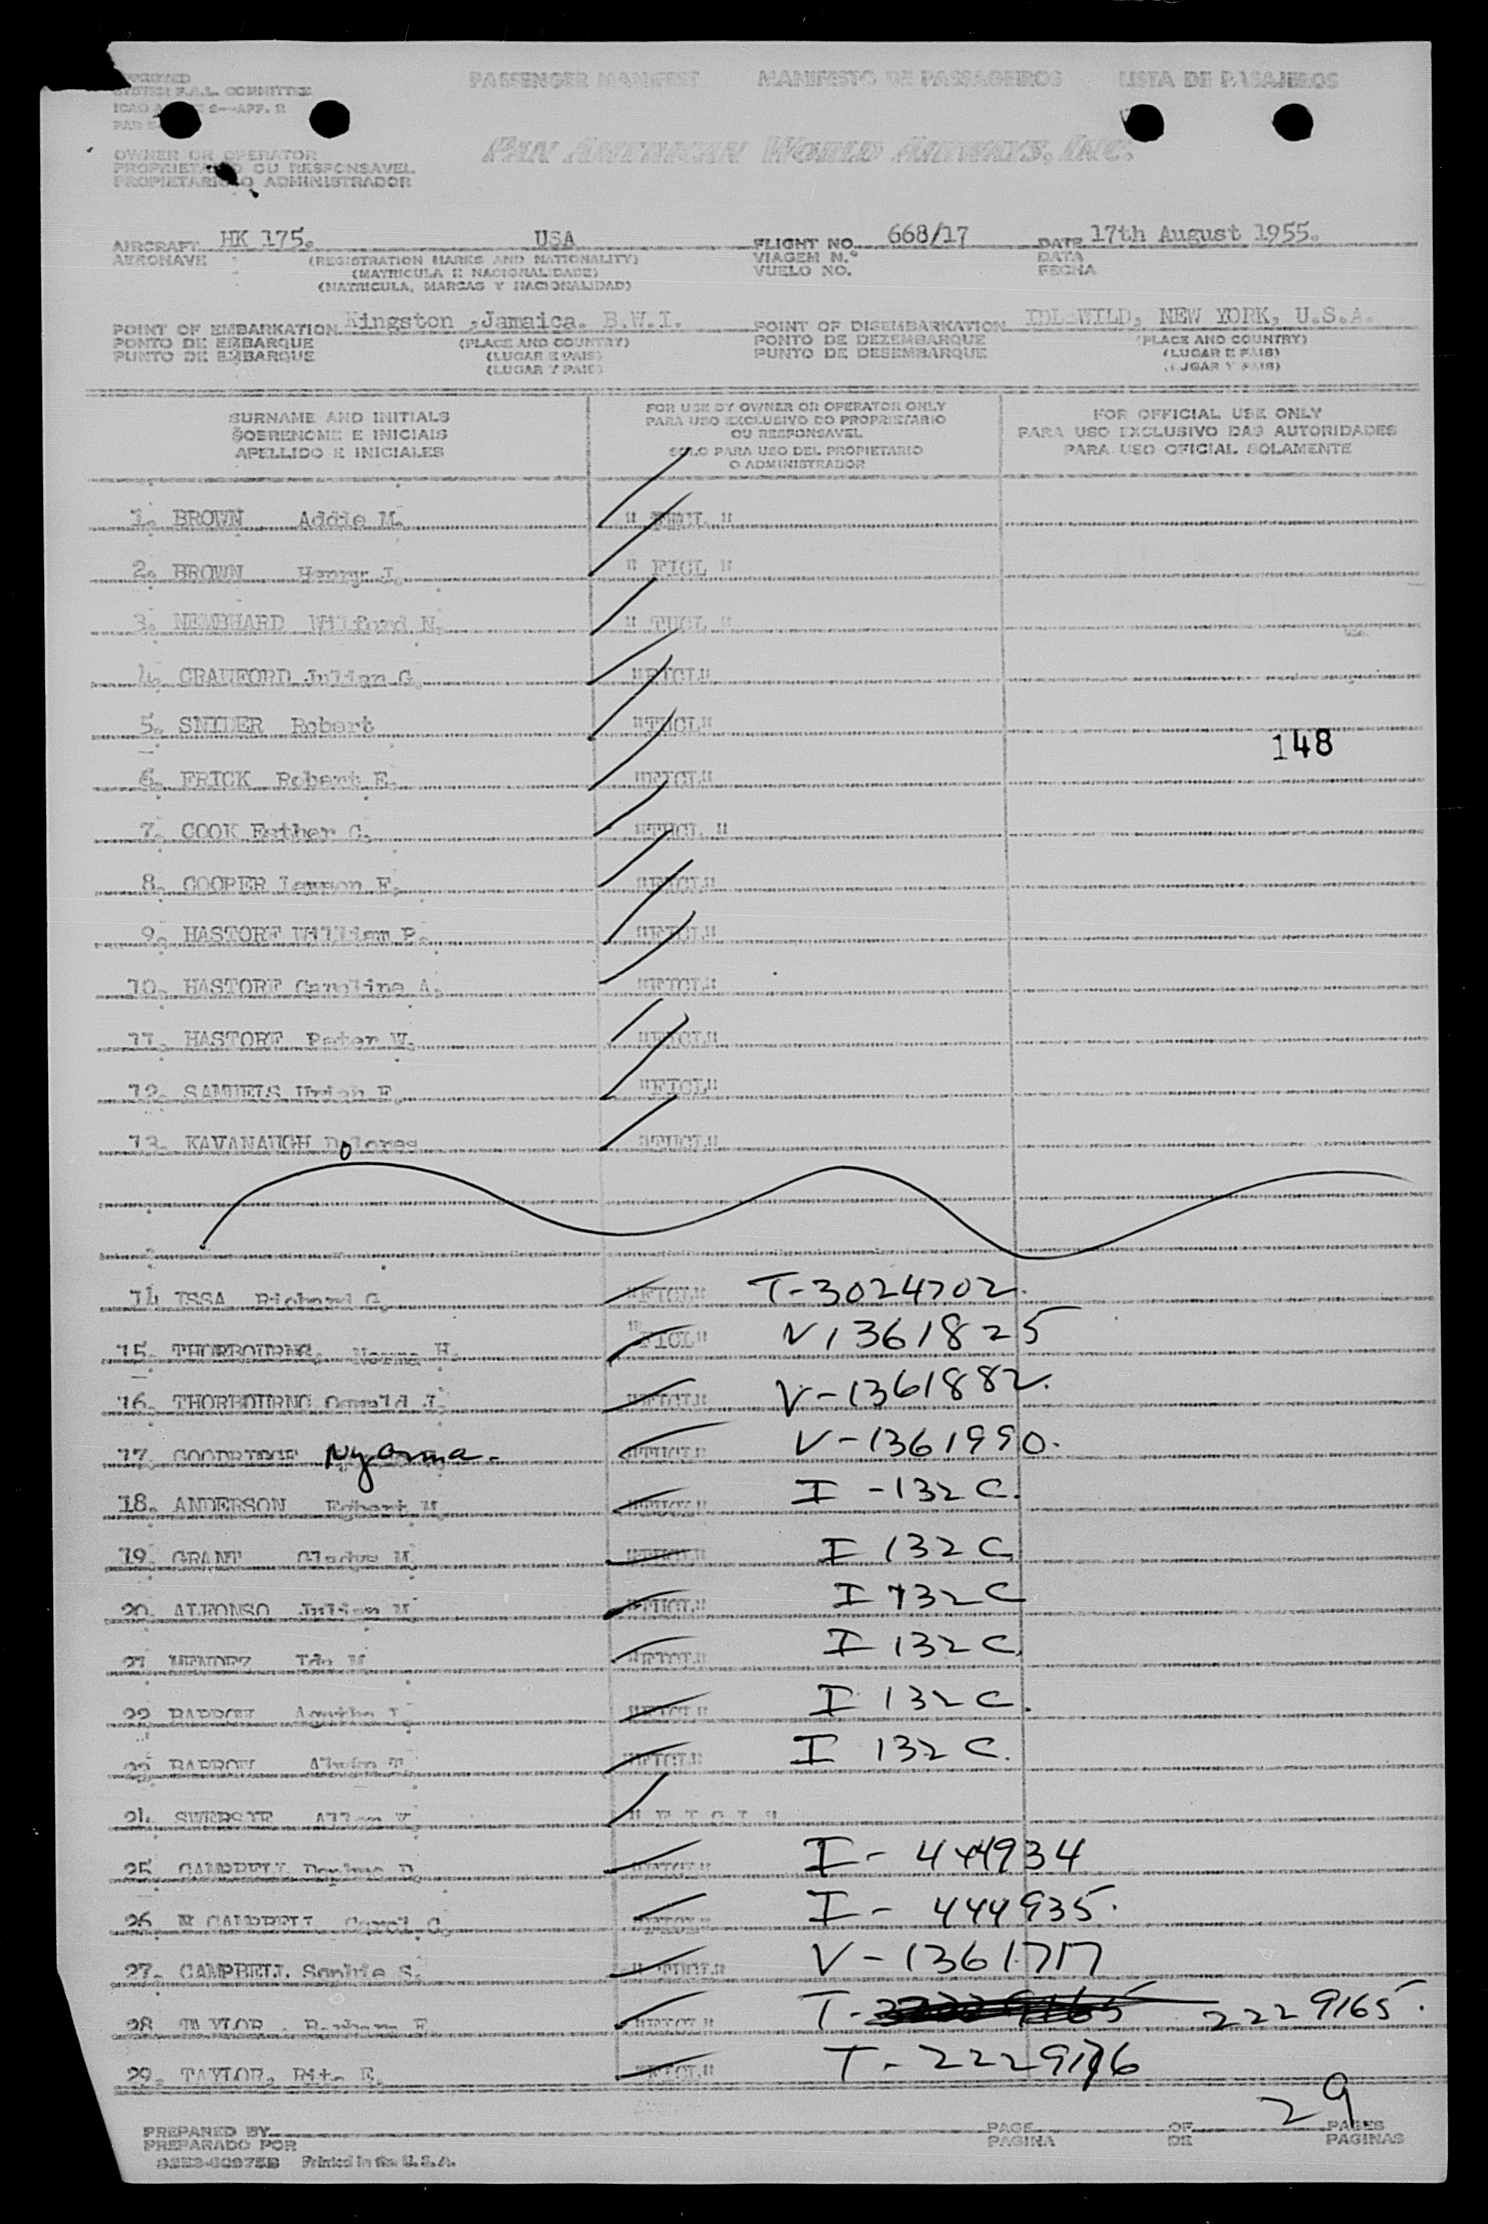 PASSENGER MANIFEST MANIFESTO DE PASSAGEIROS LISTA DE PASAJEROS
SYSTEM F.A.L. COMMITTEE
ICAO 9—APP. R
PAN AMERICAN WORLD AIRWAYS, INC.
OWNER OR OPERATOR
PROPRIETARIO OU RESPONSAVEL
PROPIETARIO O ADMINISTRADOR
AIRCRAFT HK 175. USA FLIGHT NO. 668/17 DATE 17th August 1955.
AERONAVE (REGISTRATION MARKS AND NATIONALITY) VIAGEM N.º DATA
(MATRICULA E NACIONALIDADE) VUELO NO. FECHA
(MATRICULA, MARCAS Y NACIONALIDAD)
POINT OF EMBARKATION Kingston ,Jamaica. B.W.I. POINT OF DISEMBARKATION IDLEWILD, NEW YORK, U.S.A.
PONTO DE EMBARQUE (PLACE AND COUNTRY) PONTO DE DEZEMBARQUE (PLACE AND COUNTRY)
PUNTO DE EMBARQUE (LUGAR E PAIS) PUNTO DE DESEMBARQUE (LUGAR E PAIS)
(LUGAR Y PAIS) (LUGAR Y PAIS)
SURNAME AND INITIALS FOR USE BY OWNER OR OPERATOR ONLY FOR OFFICIAL USE ONLY
SOBRENOME E INICIAIS PARA USO EXCLUSIVO DO PROPRIETARIO PARA USO EXCLUSIVO DAS AUTORIDADES
OU RESPONSAVEL
APELLIDO E INICIALES SOLO PARA USO DEL PROPIETARIO PARA USO OFICIAL SOLAMENTE
O ADMINISTRADOR
1. BROWN Addie M.
2. BROWN Henry J. " FICL "
3. NEMBHARD Wilford N.
4. CRAUFORD Julian G. "FICL"
5. SNIDER Robert
6. FRICK Robert E. "FICL"
148
7. COOK Esther C.
8. COOPER Lawson E. "FICL"
9. HASTORF William P. "FICL"
10. HASTORF Caroline A. "FICL"
11. HASTORF Peter W. "FICL"
12. SAMUELS Uriah E. "FICL"
13. KAVANAUGH Dolores
14 ISSA Richard G. "FICL" T-3024702.
15. THORBOURNE, Norma H. "FICL" V1361825
16. THORBOURNE Oswald J. V-1361882.
17. GOODRIDGE Nyorma. V-1361990.
18. ANDERSON Egbert I-132C.
19. GRANT Gladys M. I 132C
20. ALFONSO Julian M. I 132C
21 MENDEZ Ida M I 132C
22 BARROW Agatha I 132C.
23 BARROW I 132 C.
24. Allan
25. CAMPBELL I- 444934
26 CAMPBELL Carol C. I- 444935.
27. CAMPBELL Sophie S. V-1361717
28 TAYLOR Barbara E. T- 2229165.
29. TAYLOR, Rita E. "FICL" T-2229176
29
PREPARED BY PAGE OF PAGES
PREPARADO POR PAGINA DE PAGINAS
Printed in the U.S.A.